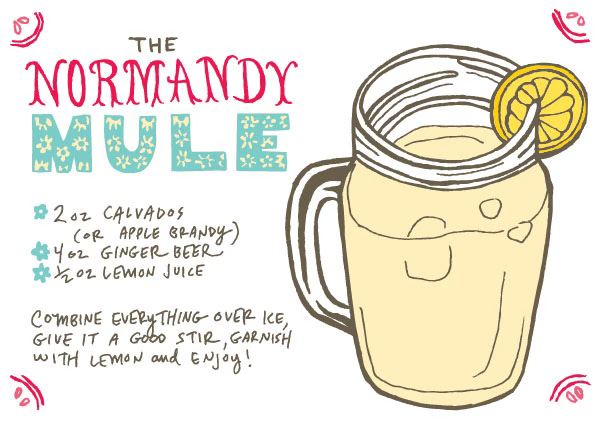 THE
NORMANDY
MULE
2 oz CALVADOS
(OR APPLE BRANDY)
4 oz GINGER BEER
½ oz LEMON JUICE
COMBINE EVERYTHING OVER ICE,
GIVE IT A GOOD STIR, GARNISH
WITH LEMON and ENJOY!